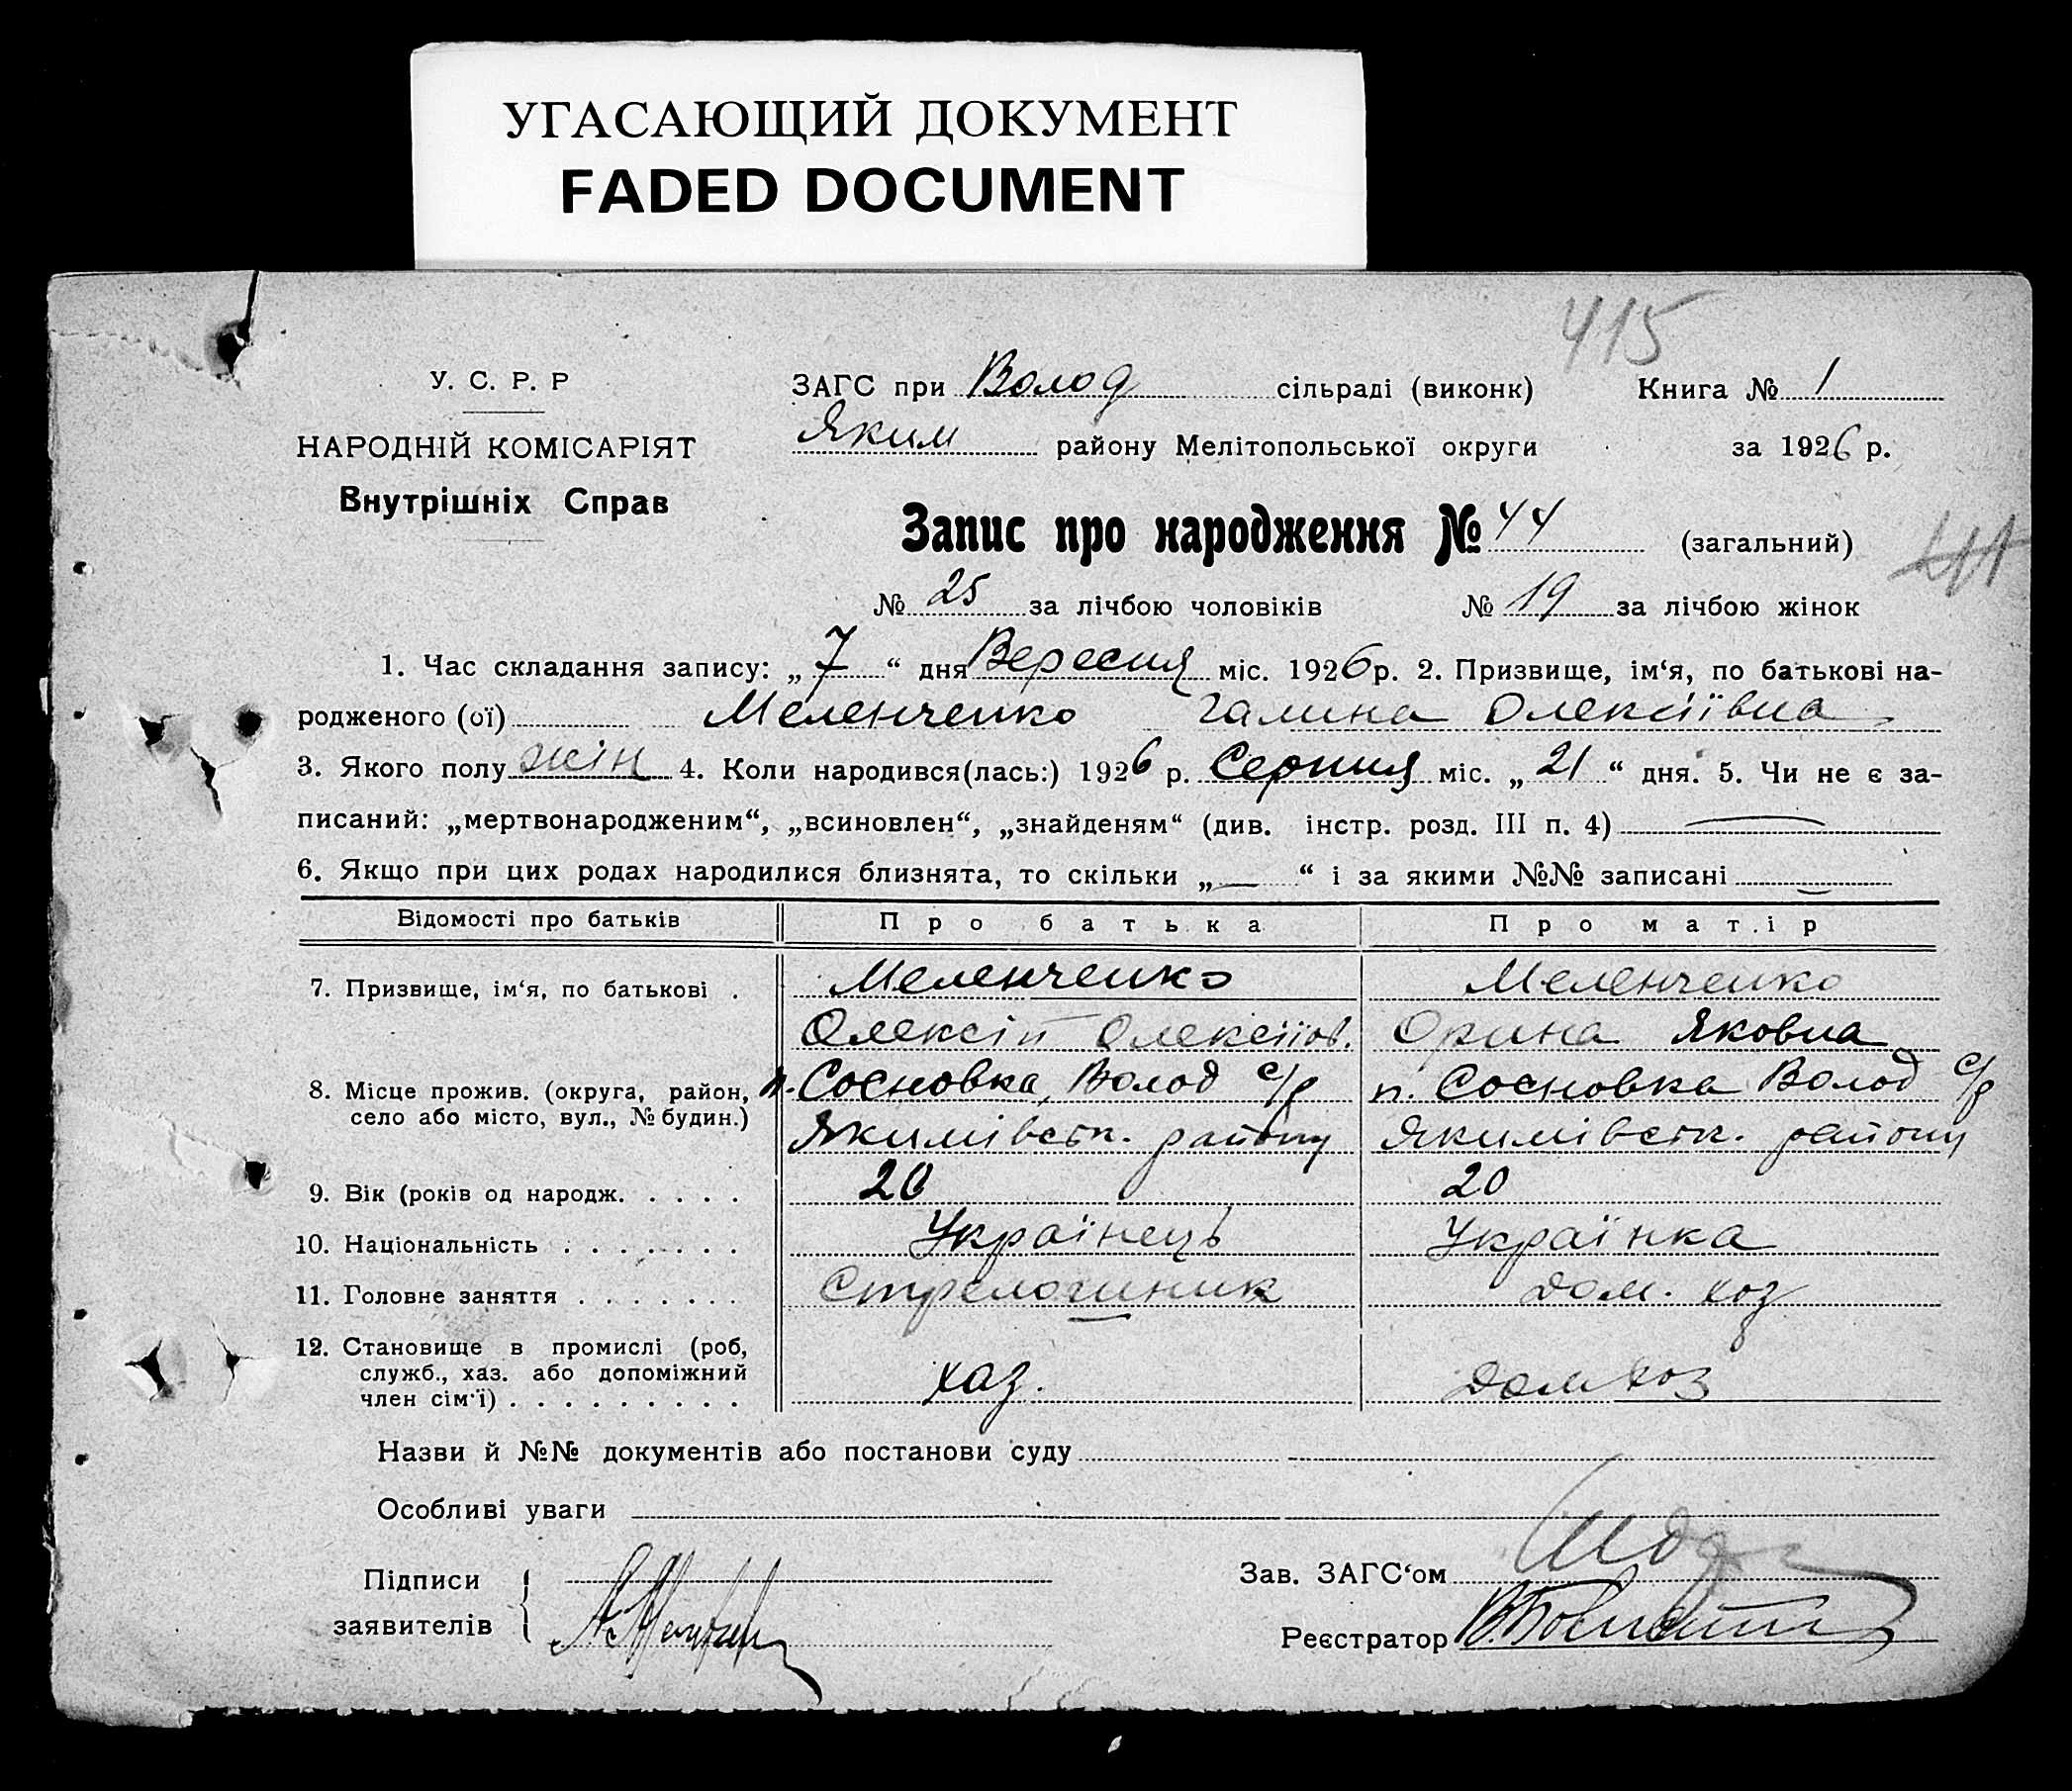 УГАСАЮЩИЙ ДОКУМЕНТ
FADED DOCUMENT
415
У. С. Р. Р
НАРОДНІЙ КОМІСАРІЯТ
Внутрішніх Справ
ЗАГС при Волод сільраді (виконк) Книга № 1
Яким району Мелітопольської округи за 1926 р.
Запис про народження № 44 (загальний)
№ 25 за лічбою чоловіків № 19 за лічбою жінок
1. Час складання запису: „7“ дня Вересня міс. 1926 р. 2. Призвище, ім‘я, по батькові на-
родженого (ої) Меленченко Галина Олексіївна
3. Якого полу жін 4. Коли народився(лась:) 1926 р. Серпня міс. „21“ дня. 5. Чи не є за-
писаний: „мертвонародженим“, „всиновлен“, „знайденям“ (див. інстр. розд. III п. 4)
6. Якщо при цих родах народилися близнята, то скільки „—“ і за якими №№ записані
Відомості про батьків Про батька Про матір
7. Призвище, ім‘я, по батькові . Меленченко Меленченко
Олексій Олексіїов. Орина Яковна
8. Місце прожив. (округа, район, п. Сосновка, Волод с/р п. Сосновка Волод с/р
село або місто, вул., № будин.) Якимівськ. району Якимівськ. району
9. Вік (років од народж. . . . . 20 20
10. Національність . . . . . . . Українець Українка
11. Головне заняття . . . . . . . дом. хоз
12. Становище в промислі (роб,
служб., хаз. або допоміжний хаз. дом хоз
член сім‘ї) . . . . . . . . .
Назви й №№ документів або постанови суду
Особливі уваги
Підписи Зав. ЗАГС‘ом
заявителів Реєстратор